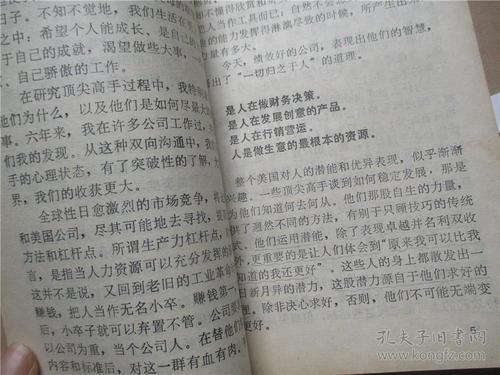 日子，不知不觉地，我们生活在
之中，希望个人能成长、是自己
于自己的成就，渴望做些大事，
、自己骄傲的工作。
在研究顶尖高手过程中，我特
他们为什么，以及他们是如何尽最大
事。六年来，我在许多公司工作过，
们我的发现。从这种双向沟通中，我们
手的心理状态，有了突破性的了解，
界，我们的收获更大。
全球性日愈激烈的市场竞争，
和美国公司，尽其可能地去寻找，
方法和杠杆点。所谓生产力杠杆点，
言，是指当人力资源可以充分发挥
这并不是说，又回到老旧的工业革命
赚钱，把人当作无名小卒。赚钱第一
后，小卒子就可以弃置不管。公司
以公司为重，当个公司人。在替他们
内容和标准后，对这一群有血有肉，
不懂得
把人当作工具而已，自然不会
的能力发挥得淋漓尽致的时候，所产生出
力量有多大。
今天，绩效好的公司，表现出他们的智慧，
出了“一切归之于人”的道理。
是人在做财务决策。
是人在发展创意的产品。
是人在行销营运。
人是做生意的最根本的资源。
整个美国对人的潜能和优异表现，似乎渐渐
兴趣。一些顶尖高手谈到如何稳定发展，那是
为他们知道何去何从。他们那股自生的力量，
供了迥然不同的方法，有别于只顾技巧的传统
式。他们运用潜能，除了表现卓越并名利双收
外，更重要的是让人们体会到“原来我可以比我
知道的我还更好”。这些人的身上都散发出一
日新月异的潜力，这股潜力源自于他们求好的
理。除非决心求好，否则，他们不可能无端变
更好。
5
孔夫子旧书网
www.kongfz.com